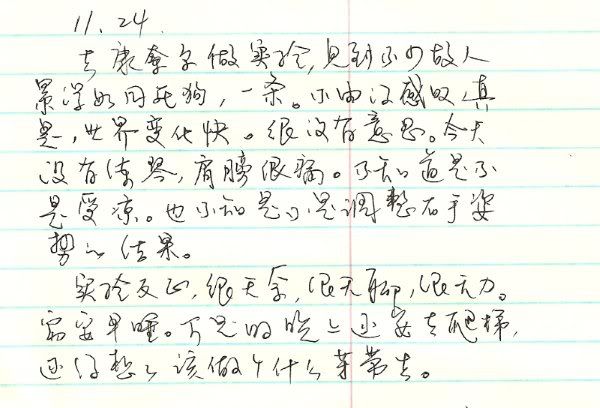 11.24.
去康奈尔做实验，见到不少故人
累得如同死狗，一条。小的没感叹，真
是，世界变化快。很没有意思。今天
没有练琴，肩膀很痛。不知道是不
是受凉。也不知是不是调整右手姿
势的结果。
实验反正，很无奈，很无聊，很无力。
需要早睡。可是明晚上还要去爬梯，
还得想想该做个什么菜带去。